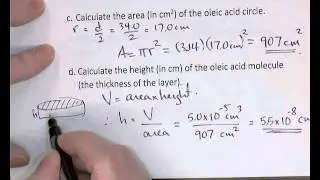 c. Calculate the area (in cm²) of the oleic acid circle.
r = d/2 = 34.0/2 = 17.0cm
A = πr² = (3.14)(17.0cm)² = 907cm²
d. Calculate the height (in cm) of the oleic acid molecule
(the thickness of the layer).
V = area x height.
h
∴ h = V/area = 5.0x10⁻⁵cm³/907 cm² = 5.5x10⁻⁸cm